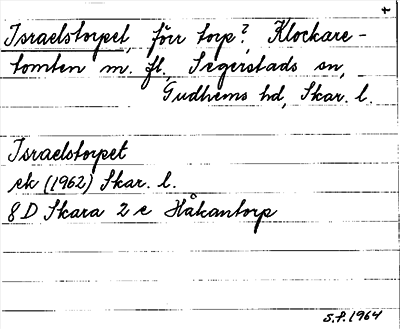 Israelstorpet, förr torp?, Klockare-
tomten m. fl., Segerstads sn,
Gudhems hd, Skar. l.
Israelstorpet
ek (1962) Skar. l.
8 D Skara 2 e Håkantorp
S.F. 1964